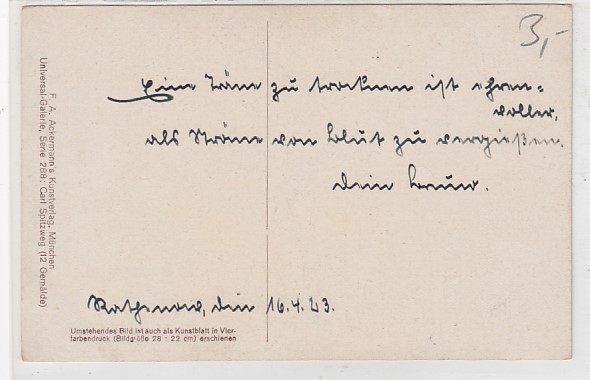 3,-
Eine Träne zu trocknen ist ehren=
voller,
als Ströme von Blut zu vergießen.
Dein
Rathenow, den 16.4.23.
Umstehendes Bild ist auch als Kunstblatt in Vier-
farbendruck (Bildgröße 28 : 22 cm) erschienen
F. A. Ackermann's Kunstverlag, München
Universal-Galerie, Serie 288: Carl Spitzweg (12 Gemälde)